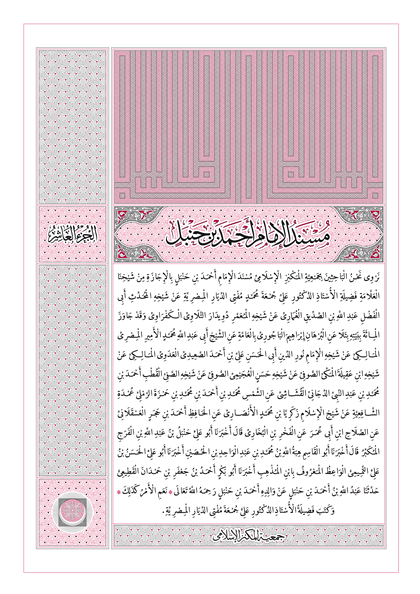 مُسْنَدُ الإِمَامِ أَحْمَدَ بْنِ حَنْبَل
الجُزْءُ العَاشِرُ
نَرْوِى نَحْنُ الْبَاحِثِينَ بِجَمْعِيَّةِ الْمَكْنَزِ الْإِسْلَامِىِّ مُسْنَدَ الْإِمَامِ أَحْمَدَ بْنِ حَنْبَلٍ بِالْإِجَازَةِ مِنْ شَيْخِنَا
الْعَلَّامَةِ فَضِيلَةِ الْأُسْتَاذِ الدُّكْتُورِ عَلِىِّ جُمْعَةَ مُحَمَّدٍ مُفْتِى الدِّيَارِ الْمِصْرِيَّةِ عَنْ شَيْخِهِ الْمُحَدِّثِ أَبِى
الْفَضْلِ عَبْدِ اللَّهِ بْنِ الصِّدِّيقِ الْغُمَارِىِّ عَنْ شَيْخِهِ الْمُعَمَّرِ مُحَمَّدٍ دُوِيدَارَ التَّلَاوِىِّ الْكَفْرَاوِىِّ وَقَدْ جَاوَزَ
الْمِائَةَ بِيَقِينٍ عَنِ الْبُرْهَانِ إِبْرَاهِيمَ الْبَاجُورِىِّ بِالْعَامَّةِ عَنِ الشَّيْخِ أَبِى عَبْدِ اللَّهِ مُحَمَّدٍ الْأَمِيرِ الْمِصْرِىِّ
الْمَالِكِىِّ عَنْ شَيْخِهِ الْإِمَامِ نُورِ الدِّينِ أَبِى الْحَسَنِ عَلِىِّ بْنِ أَحْمَدَ الصَّعِيدِىِّ الْعَدَوِىِّ الْمَالِكِىِّ عَنْ
شَيْخِهِ ابْنِ عَقِيلَةَ الْمَكِّىِّ الصُّوفِىِّ عَنْ شَيْخِهِ حَسَنٍ الْعُجَيْمِىِّ الصُّوفِىِّ عَنْ شَيْخِهِ الصَّفِىِّ الْقُطْبِ أَحْمَدَ بْنِ
مُحَمَّدِ بْنِ عَبْدِ النَّبِىِّ الدَّجَانِىِّ الْقُشَاشِىِّ عَنِ الشَّمْسِ مُحَمَّدِ بْنِ أَحْمَدَ بْنِ مُحَمَّدِ بْنِ حَمْزَةَ الرَّمْلِىِّ عُمْدَةِ
الشَّافِعِيَّةِ عَنْ شَيْخِ الْإِسْلَامِ زَكَرِيَّا بْنِ مُحَمَّدٍ الْأَنْصَارِىِّ عَنِ الْحَافِظِ أَحْمَدَ بْنِ حَجَرٍ الْعَسْقَلَانِىِّ
عَنِ الصَّلَاحِ ابْنِ أَبِى عُمَرَ عَنِ الْفَخْرِ بْنِ الْبُخَارِىِّ قَالَ أَخْبَرَنَا أَبُو عَلِىٍّ حَنْبَلُ بْنُ عَبْدِ اللَّهِ بْنِ الْفَرَجِ
الْمُكَبِّرُ قَالَ أَخْبَرَنَا أَبُو الْقَاسِمِ هِبَةُ اللَّهِ بْنُ مُحَمَّدِ بْنِ عَبْدِ الْوَاحِدِ بْنِ الْحُصَيْنِ أَخْبَرَنَا أَبُو عَلِىٍّ الْحَسَنُ بْنُ
عَلِىٍّ التَّمِيمِىُّ الْوَاعِظُ الْمَعْرُوفُ بِابْنِ الْمُذْهِبِ أَخْبَرَنَا أَبُو بَكْرٍ أَحْمَدُ بْنُ جَعْفَرِ بْنِ حَمْدَانَ الْقَطِيعِىُّ
حَدَّثَنَا عَبْدُ اللَّهِ بْنُ أَحْمَدَ بْنِ حَنْبَلٍ عَنْ وَالِدِهِ أَحْمَدَ بْنِ حَنْبَلٍ رَحِمَهُ اللَّهُ تَعَالَى * نَعَمِ الْأَمْرُ كَذَلِكَ *
وَكَتَبَ فَضِيلَةُ الْأُسْتَاذِ الدُّكْتُورِ عَلِىِّ جُمْعَةَ مُفْتِى الدِّيَارِ الْمِصْرِيَّةِ.
جمعية المكنز الإسلامي